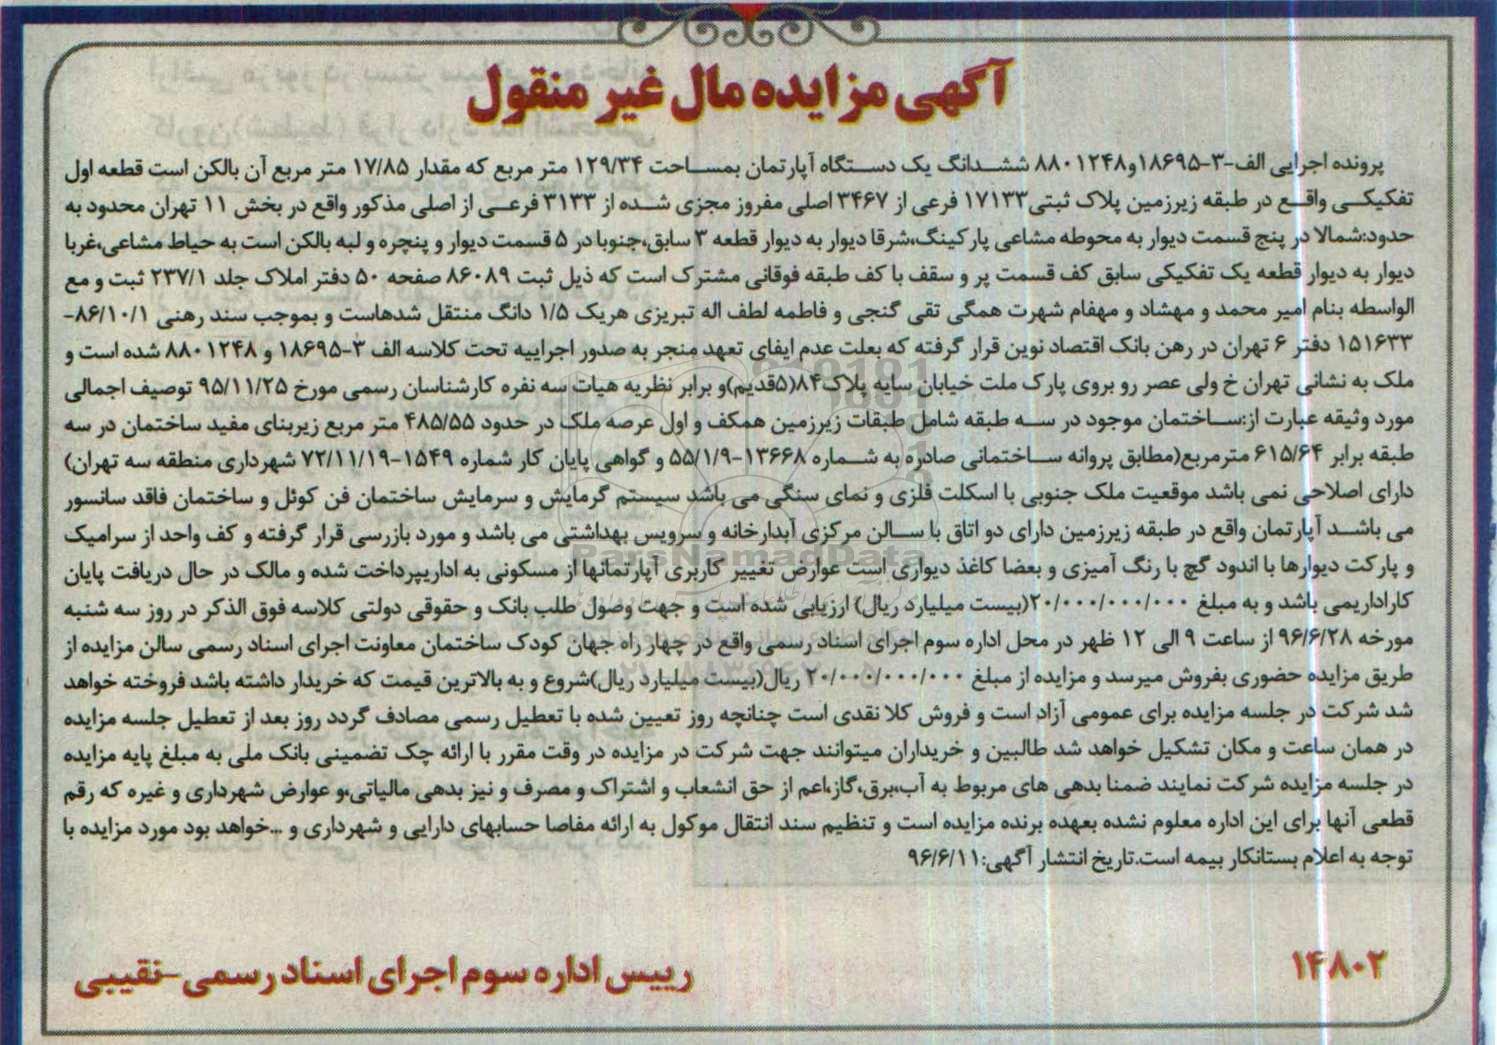 آگهی مزایده مال غیر منقول
پرونده اجرایی الف-۳-۱۸۶۹۵و۸۸۰۱۲۴۸ ششدانگ یک دستگاه آپارتمان بمساحت ۱۲۹/۳۴ متر مربع که مقدار ۱۷/۸۵ متر مربع آن بالکن است قطعه اول
تفکیکی واقع در طبقه زیرزمین پلاک ثبتی۱۷۱۳۳ فرعی از ۳۴۶۷ اصلی مفروز مجزی شده از ۳۱۳۳ فرعی از اصلی مذکور واقع در بخش ۱۱ تهران محدود به
حدود:شمالا در پنج قسمت دیوار به محوطه مشاعی پارکینگ،شرقا دیوار به دیوار قطعه ۳ سابق،جنوبا در ۵ قسمت دیوار و پنجره و لبه بالکن است به حیاط مشاعی،غربا
دیوار به دیوار قطعه یک تفکیکی سابق کف قسمت پر و سقف با کف طبقه فوقانی مشترک است که ذیل ثبت ۸۶۰۸۹ صفحه ۵۰ دفتر املاک جلد ۲۳۷/۱ ثبت و مع
الواسطه بنام امیر محمد و مهشاد و مهفام شهرت همگی تقی گنجی و فاطمه لطف اله تبریزی هریک ۱/۵ دانگ منتقل شدهاست و بموجب سند رهنی ۸۶/۱۰/۱-
۱۵۱۶۳۳ دفتر ۶ تهران در رهن بانک اقتصاد نوین قرار گرفته که بعلت عدم ایفای تعهد منجر به صدور اجراییه تحت کلاسه الف ۳-۱۸۶۹۵ و ۸۸۰۱۲۴۸ شده است و
ملک به نشانی تهران خ ولی عصر رو بروی پارک ملت خیابان سایه پلاک۸۴(۵قدیم)و برابر نظریه هیات سه نفره کارشناسان رسمی مورخ ۹۵/۱۱/۲۵ توصیف اجمالی
مورد وثیقه عبارت از:ساختمان موجود در سه طبقه شامل طبقات زیرزمین همکف و اول عرصه ملک در حدود ۴۸۵/۵۵ متر مربع زیربنای مفید ساختمان در سه
طبقه برابر ۶۱۵/۶۴ مترمربع(مطابق پروانه ساختمانی صادره به شماره ۱۳۶۶۸-۵۵/۱/۹ و گواهی پایان کار شماره ۱۵۴۹-۷۲/۱۱/۱۹ شهرداری منطقه سه تهران)
دارای اصلاحی نمی باشد موقعیت ملک جنوبی با اسکلت فلزی و نمای سنگی می باشد سیستم گرمایش و سرمایش ساختمان فن کوئل و ساختمان فاقد سانسور
می باشد آپارتمان واقع در طبقه زیرزمین دارای دو اتاق با سالن مرکزی آبدارخانه و سرویس بهداشتی می باشد و مورد بازرسی قرار گرفته و کف واحد از سرامیک
و پارکت دیوارها با اندود گچ با رنگ آمیزی و بعضا کاغذ دیواری است عوارض تغییر کاربری آپارتمانها از مسکونی به اداریپرداخت شده و مالک در حال دریافت پایان
کاراداریمی باشد و به مبلغ ۲۰/۰۰۰/۰۰۰/۰۰۰(بیست میلیارد ریال) ارزیابی شده است و جهت وصول طلب بانک و حقوقی دولتی کلاسه فوق الذکر در روز سه شنبه
مورخه ۹۶/۶/۲۸ از ساعت ۹ الی ۱۲ ظهر در محل اداره سوم اجرای اسناد رسمی واقع در چهار راه جهان کودک ساختمان معاونت اجرای اسناد رسمی سالن مزایده از
طریق مزایده حضوری بفروش میرسد و مزایده از مبلغ ۲۰/۰۰۰/۰۰۰/۰۰۰ ریال(بیست میلیارد ریال)شروع و به بالاترین قیمت که خریدار داشته باشد فروخته خواهد
شد شرکت در جلسه مزایده برای عمومی آزاد است و فروش کلا نقدی است چنانچه روز تعیین شده با تعطیل رسمی مصادف گردد روز بعد از تعطیل جلسه مزایده
در همان ساعت و مکان تشکیل خواهد شد طالبین و خریداران میتوانند جهت شرکت در مزایده در وقت مقرر با ارائه چک تضمینی بانک ملی به مبلغ پایه مزایده
در جلسه مزایده شرکت نمایند ضمنا بدهی های مربوط به آب،برق،گاز،اعم از حق انشعاب و اشتراک و مصرف و نیز بدهی مالیاتی،و عوارض شهرداری و غیره که رقم
قطعی آنها برای این اداره معلوم نشده بعهده برنده مزایده است و تنظیم سند انتقال موکول به ارائه مفاصا حسابهای دارایی و شهرداری و ...خواهد بود مورد مزایده با
توجه به اعلام بستانکار بیمه است.تاریخ انتشار آگهی:۹۶/۶/۱۱
۱۴۸۰۲
رییس اداره سوم اجرای اسناد رسمی-نقیبی
ParsNamadData